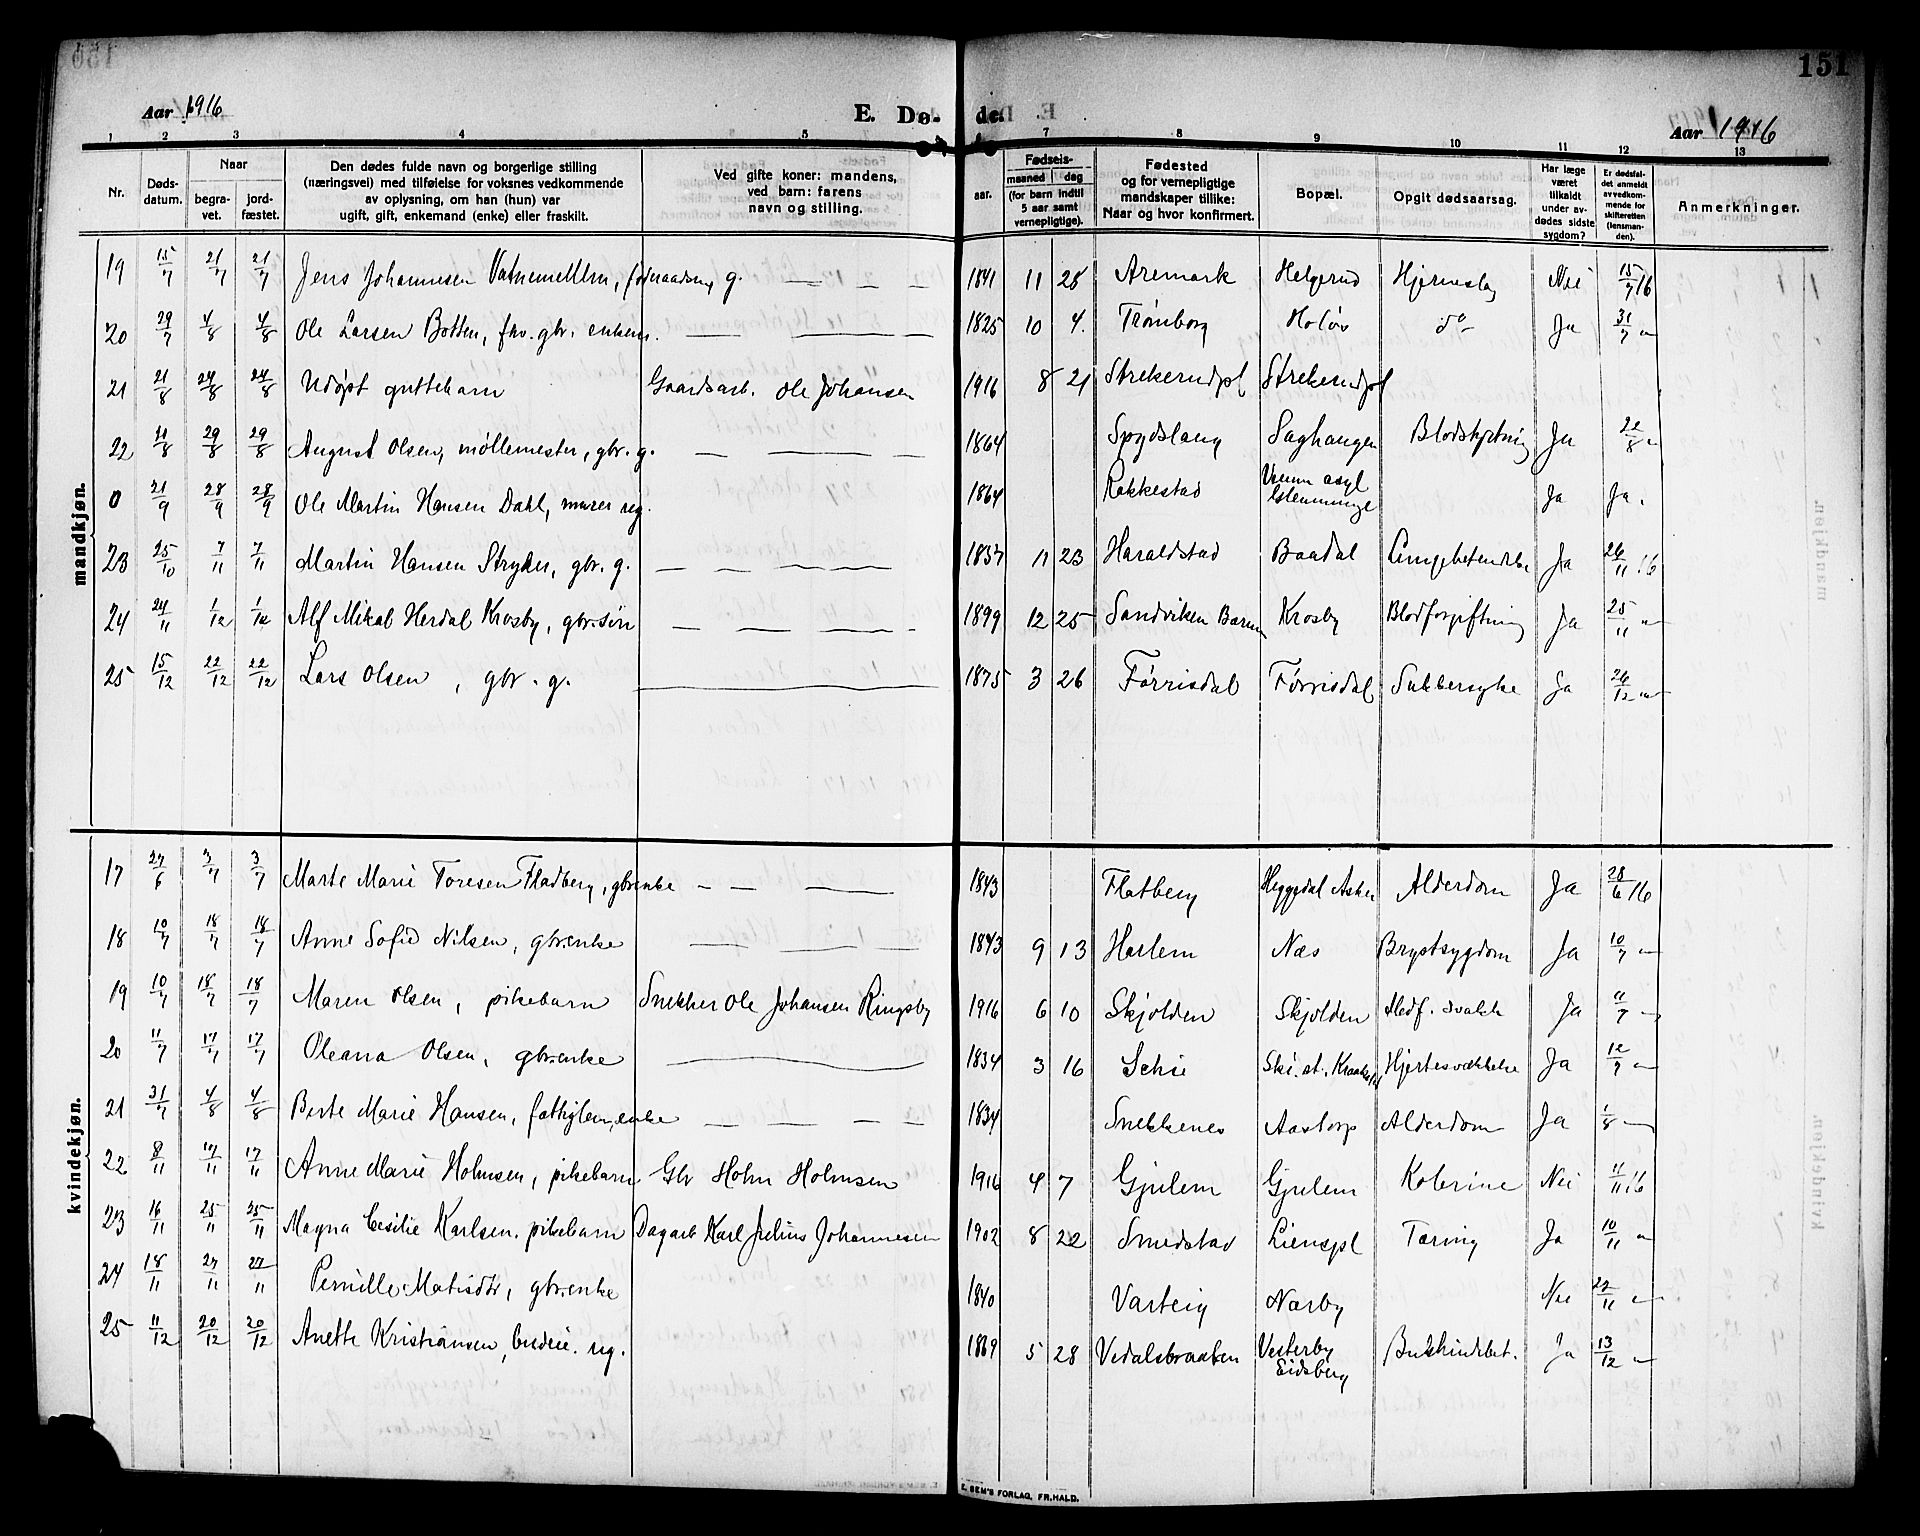 151
Aar 1916
E. Dø- de.
Aar 1916
1 2 3 4 5 7 8 9 10 11 12 13
Nr.
Døds-datum.
Naar
begra-vet.
jord-fæstet.
Den dødes fulde navn og borgerlige stilling
(næringsvei) med tilføielse for voksnes vedkommende
av oplysning, om han (hun) var
ugift, gift, enkemand (enke) eller fraskilt.
Ved gifte koner: mandens,
ved barn: farens
navn og stilling.
Fødsels-
aar.
maaned dag
(for barn indtil
5 aar samt
vernepligtige).
Fødested
og for vernepligtige
mandskaper tillike:
Naar og hvor konfirmert.
Bopæl.
Opgit dødsaarsag.
Har læge
været
tilkaldt
under av-
dødes sidste
sygdom?
Er dødsfal-
det anmeldt
av vedkom-
mende for
skifteretten
(lensman-
den).
Anmerkninger.
mandkjøn.
19 15/7 21/7 21/7 Jens Johannesen g. — — — 1841 11 28 Aremark Helgerud Hjerneslag Nei 15/7 16
20 29/7 4/8 4/8 Ole Larsen Botten, fhv. gbr. enkem. — — — 1825 10 4. Trømborg Holøs do Ja 31/7 "
21 21/8 24/8 24/8 Udøpt guttebarn Gaardsarb. Ole Johansen 1916 8 21 Strekerudpl Strekerudpl
22 21/8 29/8 29/8 August Olsen, møllemester, gbr. g. — — — 1864 Spydslaug Saghaugen Blodstyrtning Ja 22/8 "
0 21/9 28/9 28/9 Ole Martin Hansen Dahl, murer ug. 1864 Rakkestad asyl Ja Ja.
23 25/10 7/11 7/11 Martin Hansen Stryker, gbr. g. — — — 1837 11 23 Haraldstad Baadal Lungebetændelse Ja 26/11 16
24 24/11 1/12 1/12 Alf Mikal Herdal Krosby, gbr.søn — — — 1899 12 25 Sandviken Bærum Krosby Blodforgiftning Ja 25/11 "
25 15/12 22/12 22/12 Lars Olsen, gbr. g. — 1875 3 26 Førrisdal Førrisdal Sukkersyke Ja 26/12 "
kvindekjøn.
17 27/6 3/7 3/7 Marte Marie Toresen Fladberg, gbr.enke — — — 1843 Flatberg Heggedal Asker Alderdom Ja 28/6 16
18 10/7 18/7 18/7 Anne Sofie Nilsen, gbr.enke — — — 1843 9 13 Harlem Næs Brystsygdom Ja 10/7 "
19 10/7 18/7 18/7 Maren Olsen, pikebarn Snekker Ole Johansen Ringsby 1916 6 10 Skjolden Skjolden Medf. svakh Ja 11/7 "
20 11/7 17/7 17/7 Oleana Olsen, gbr.enke — 1834 3 16 Schie Ski. st. Kraakstad Hjertesvækkelse Ja 12/7 "
21 31/7 4/8 4/8 Berte Marie Hansen, fattiglem, enke — — — 1834 Snekkenes Aastorp Alderdom Ja 1/8 "
22 8/11 17/11 17/11 Anne Marie Holmsen, pikebarn Gbr Holm Holmsen 1916 4 7 Gjulem Gjulem Kolerine Nei 11/11 16
23 16/11 25/11 25/11 Magna Cesilie Karlsen, pikebarn Dagarb Karl Julius Johannesen 1902 8 22 Smedstad Lienspl Tæring Ja 10/11 "
24 18/11 27/11 27/11 Pernille Matisdtr, gbr.enke 1840 Varteig Nærby Nei 22/11 "
25 11/12 20/12 20/12 Anette Kristiansen, budeie. ug. 1869 5 28 Vedalsbraaten Vesterby Eidsberg Bukhindebet. Ja 13/12 "
E. SEM'S FORLAG, FR.HALD.